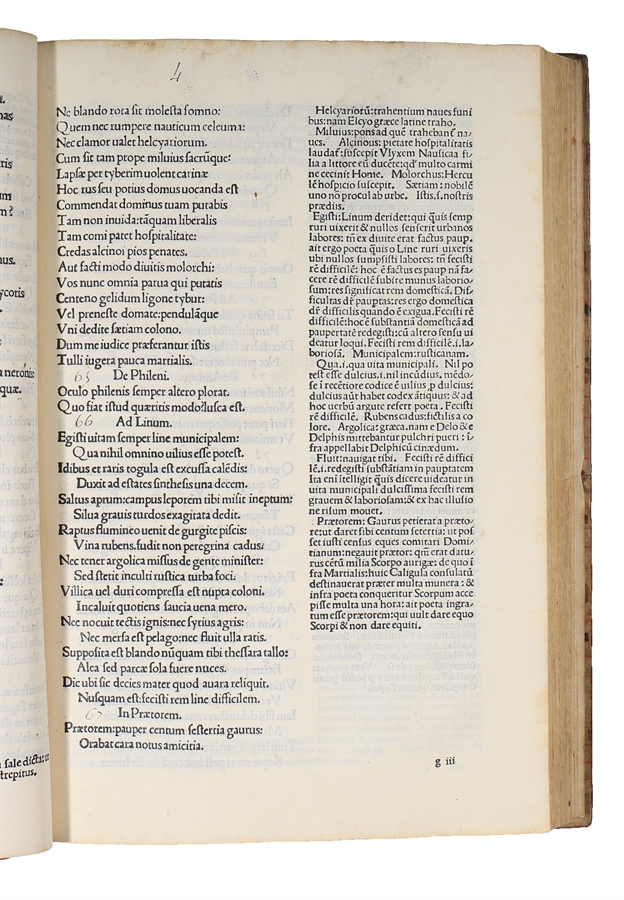 4
Ne blando rota sit molesta somno:
Quem nec rumpere nauticum celeuma:
Nec clamor ualet helcyariorum.
Cum sit tam prope miluius sacrũque:
Lapsæ per tyberim uolent carinæ
Hoc rus seu potius domus uocanda est
Commendat dominus tuam putabis
Tam non inuida: tãquam liberalis
Tam comi patet hospitalitate:
Credas alcinoi pios penates.
Aut facti modo diuitis molorchi:
Vos nunc omnia parua qui putatis
Centeno gelidum ligone tybur:
Vel preneste domate: pendulãque
Vni dedite sætiam colono.
Dum me iudice præferantur istis
Tulli iugera pauca martialis.
65 De Phileni.
Oculo philenis semper altero plorat.
Quo fiat istud quæritis modo? lusca est.
66 Ad Linum.
Egisti uitam semper line municipalem:
Qua nihil omnino uilius esse potest.
Idibus et raris togula est excussa calẽdis:
Duxit ad estates sinthesis una decem.
Saltus aprum: campus leporem tibi misit ineptum:
Silua grauis turdos exagitata dedit.
Raptus flumineo uenit de gurgite piscis:
Vina rubens. fudit non peregrina cadus:
Nec tener argolica missus de gente minister:
Sed stetit inculti rustica turba foci.
Villica uel duri compressa est nupta coloni.
Incaluit quotiens saucia uena mero.
Nec nocuit tectis ignis: nec syrius agris:
Nec mersa est pelago: nec fluit ulla ratis.
Supposita est blando nũquam tibi thessara tallo:
Alea sed parcæ sola fuere nuces.
Dic ubi sic decies mater quod auara reliquit.
Nusquam est: fecisti rem line difficilem.
67 In Prætorem.
Prætorem: pauper centum sestertia gaurus:
Orabat cara notus amicitia.
Helcyariorũ: trahentium naues funi
bus: nam Elcyo græce latine traho.
Miluius: pons ad quẽ trahebant̃ na/
ues. Alcinous: pietate hospitalitatis
laudat̃: suscepit Vlyxem Nausicaa fi/
lia a littore eũ ducẽte: qd' multo carmi
ne cecinit Home. Molorchus: Hercu
lẽ hospicio suscepit. Sætiam: nobilẽ
uino nõ procul ab urbe. Istis. s. nostris
prædiis.
Egisti: Linum deridet: qui quis semp
ruri uixerit & nullos senserit urbanos
labores: tñ ex diuite erat factus paup.
ait ergo poeta quis o Line ruri uixeris
ubi nullos sumpsisti labores: tñ fecisti
rẽ difficilẽ: hoc ẽ factus es paup nã fa/
cere rẽ difficilẽ subire munus laborio/
sum: res significat rem domesticã. Dif/
ficultas dẽ paupertas: res ergo domestica
dẽ difficilis quando ẽ exigua. Fecisti rẽ
difficilẽ: hoc ẽ substantiã domesticã ad
paupertatẽ redegisti: cũ altero sensu ui
deatur loqui. Fecisti rem difficilẽ. i. la/
boriosã. Municipalem: rusticanam.
Qua. i. qua uita municipali. Nil po
test esse dulcius. i. nil incũdius. mẽdo/
se ĩ recẽtiore codice ẽ uilius p dulcius:
dulcius aũt habet codex ãtiquus: & ad
hoc uerbũ argute refert poeta. Fecisti rẽ
difficilem. Rubens cadus: fictilis a co
lore. Argolica: græca. nam e Delo & e
Delphis mittebantur pulchri pueri: ĩ/
fra appellabit Delphicũ cinædum.
Fluit: nauigat tibi. Fecisti rẽ diffici
lẽ. i. redegisti substãtiam in paupertatem
Ita eni ĩtelligit quis dicere uideatur in
uita municipali dulcissima fecisti rem
grauem & laboriosam: & ex hac illusio
ne risum mouet.
Prætorem: Gaurus petierat a præto/
re: ut daret sibi centum sestertia: ut pos
set iusti census eques comitari Domi
tianum: negauit prætor: qm̃ erat datu/
rus cẽtũ milia Scorpo aurigæ: de quo ĩ
fra Martialis: huic Caligula consulatũ
destinauerat præter multa munera: &
infra poeta conqueritur Scorpum acce
pisse multa una hora: ait poeta ingra/
tum esse prætorem: qui uult dare equo
Scorpi & non dare equiti.
g iii